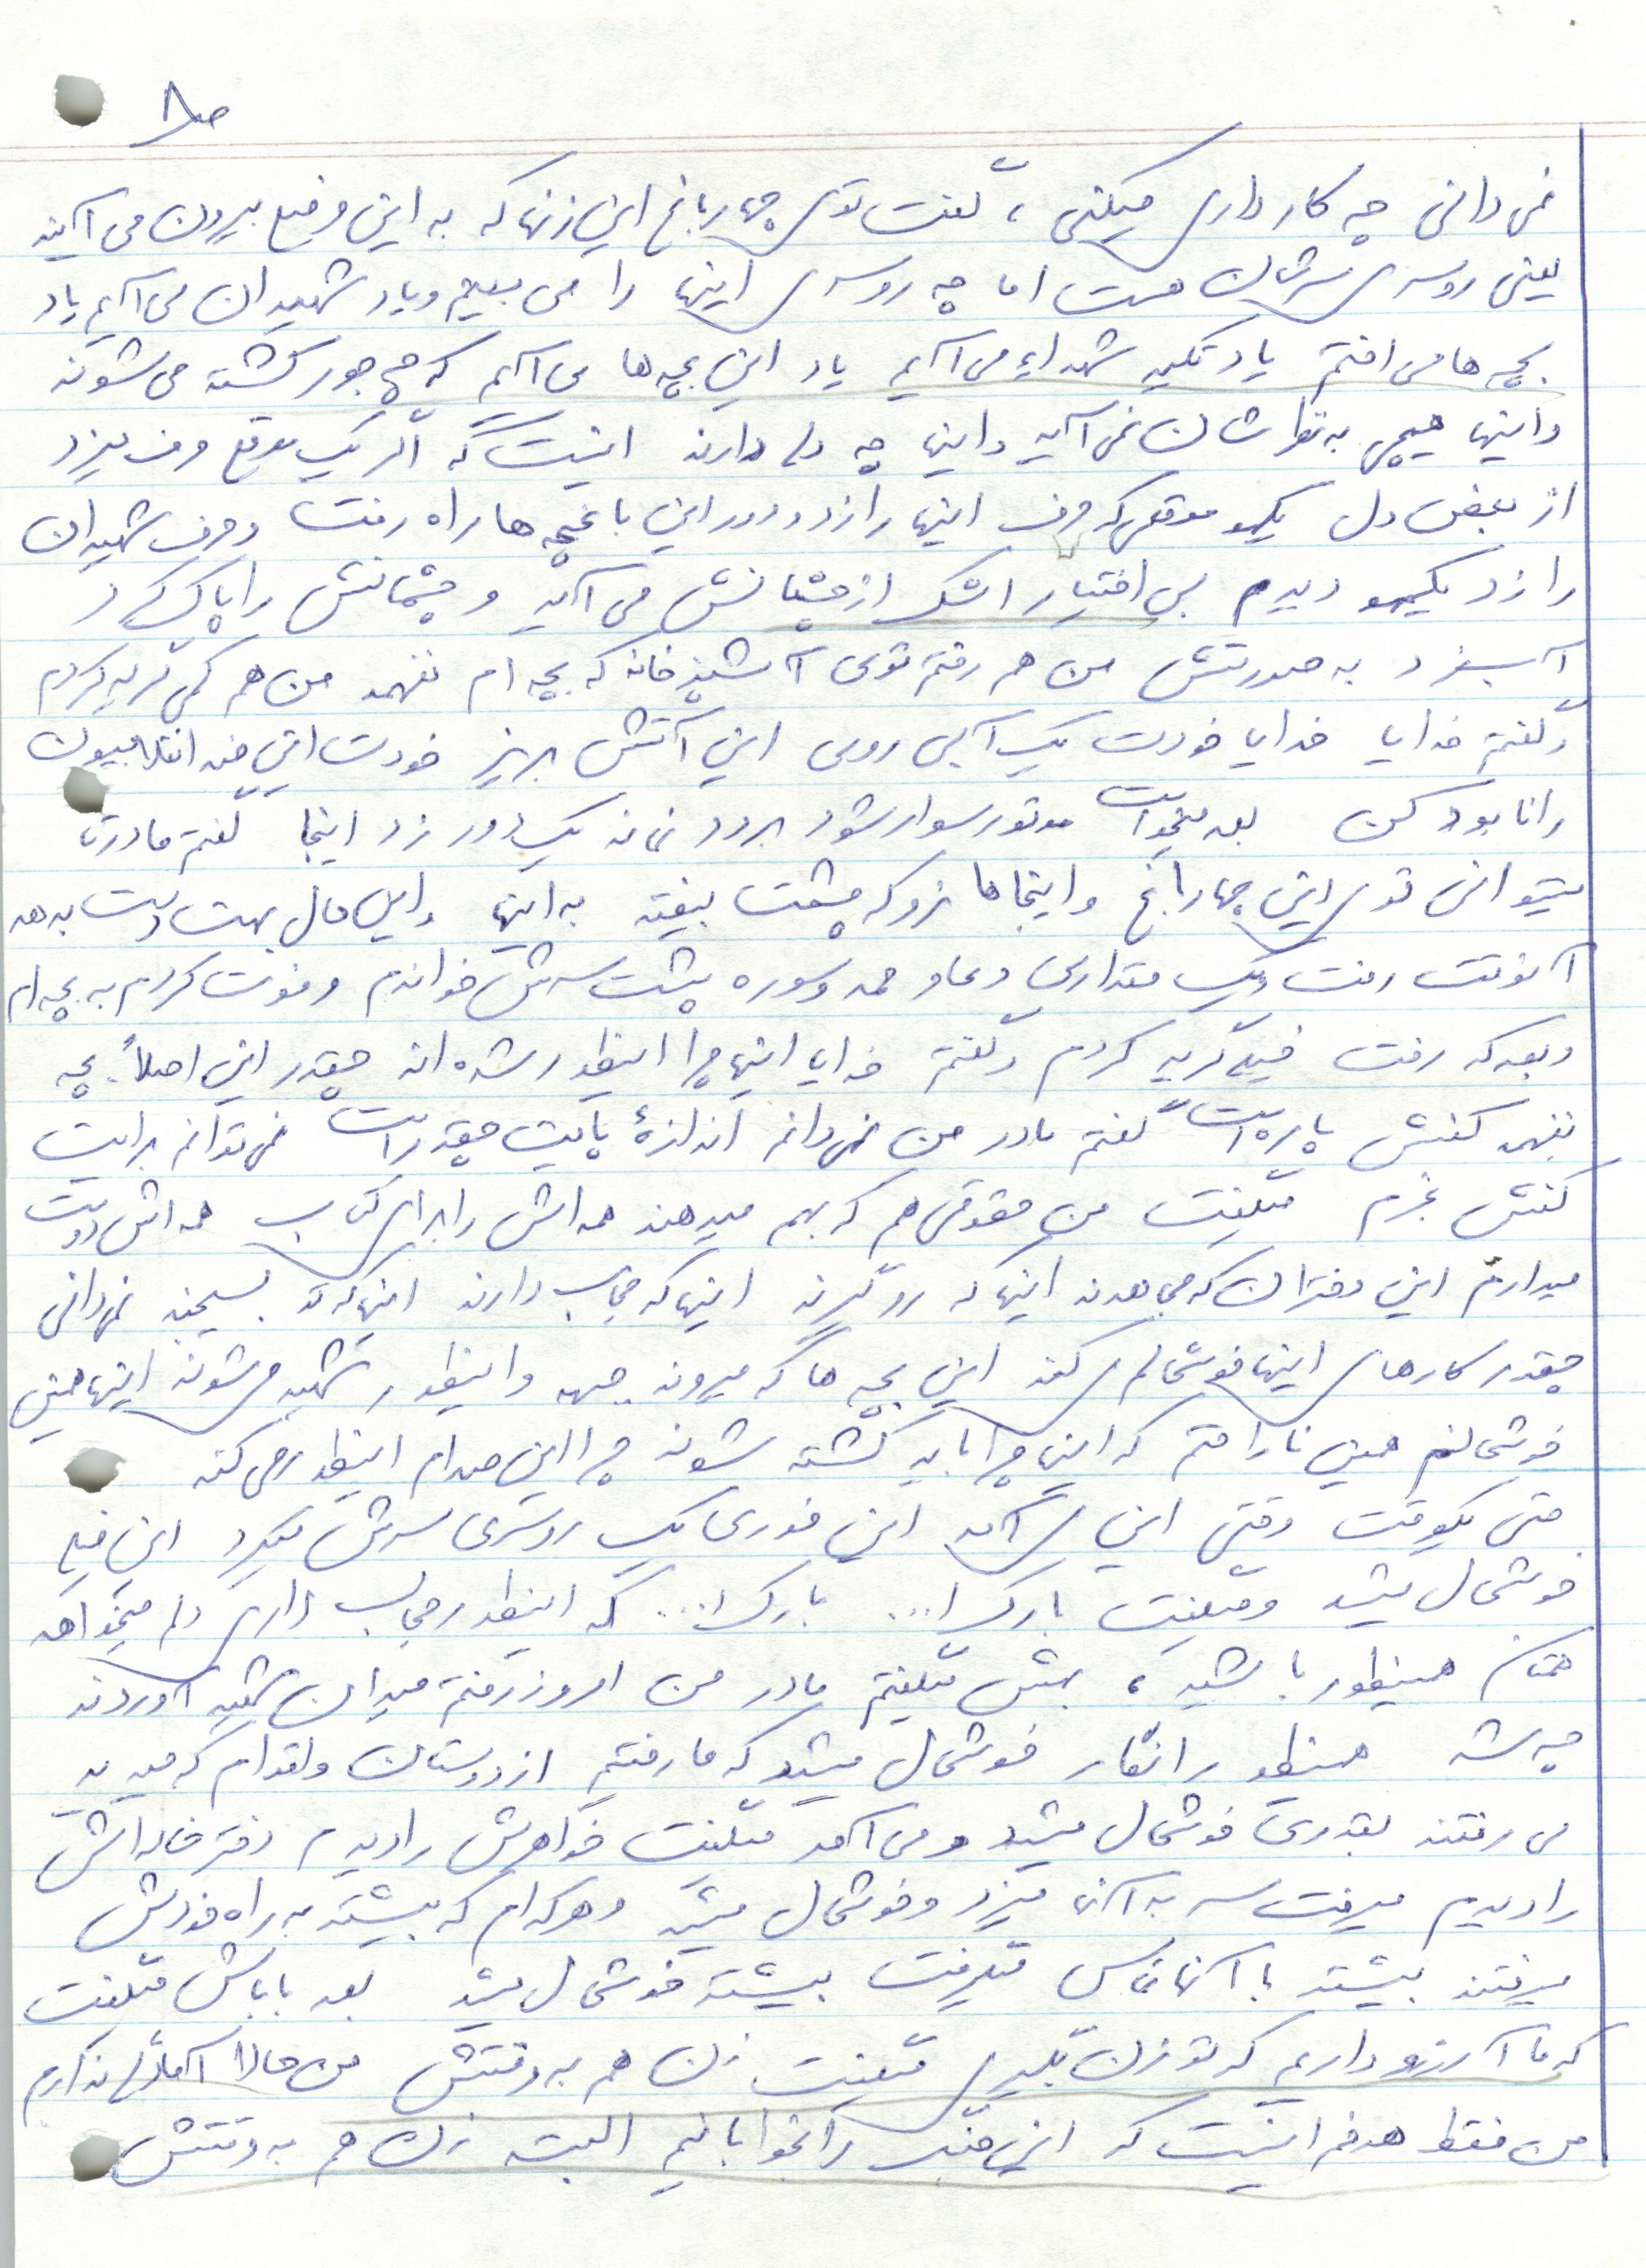 ص۸
نمی دانی چه کار داری میکنی ، گفت توی چهارباغ این زنها که به این وضع بیرون می آیند
یعنی روسری سرشان هست اما چه روسری اینها را می بینم و یاد شهیدان می آیم یاد
بچه ها می افتم یاد تکیه شهداء می آیم یاد این بچه ها می آیم که چه جور کشته می شوند
و اینها هیچی به نظرشان نمی آید و اینها چه دلی دارند اینست که اگر یک موقع حرف میزد
از بعض دل یکهو موقعی که حرف اینها را زد و دور این باغچه ها راه رفت و حرف شهیدان
را زد یکهو دیدم بی اختیار اشک از چشمانش می آید و چشمانش را پاک کرد
آب زد به صورتش من هم رفتم توی آشپزخانه که بچه ام نفهمد من هم کمی گریه کردم
و گفتم خدایا خدایا خودت یک آبی روی این آتش بریز خودت این ضد انقلابیون
را نابود کن بعد میخواست موتور سوار شود برود نماند یک دور زد اینجا گفتم مادر
میتوانی توی این چهارباغ و اینجاها نرو که چشمت بیفتد به اینها و این حال بهت دست بدهد
آنوقت رفت و یک مقداری دعا و حمد و سوره پشت سرش خواندم و فوت کردم به بچه ام
و بعد که رفت خیلی گریه کردم و گفتم خدایا اینها چرا اینطور شده اند چقدر این اصلاً بچه
نفهمد کفش پاره است گفتم مادر من نمی دانم اندازهٔ پایت چقدر است نمی توانم برایت
کفش بخرم میگفت من حقوقی هم که بهم میدهند همه اش را برای کتاب همه اش دوست
میدارم این دختران که مجاهدند اینها که رو گیرند اینها که حجاب دارند اینها که تو بسیجند نمی دانی
چقدر کارهای اینها خوشحالم می کند این بچه ها که میروند جبهه و اینطور شهید می شوند اینها همین
خوشحالم همین ناراحتم که اینها چرا باید کشته شوند چرا این صدام اینطور می کند
حتی یکوقت وقتی این می آمد این فوری یک روسری سرش میکرد این خیلی
خوشحال میشد و میگفت بارک ا... بارک ا... که اینطور حجاب داری دلم میخواهد
همه تان همینطور باشید ، بهش میگفتم مادر من امروز رفتم میدان شهید آوردند
چه شد همینطور انگار خوشحال میشد که ما رفتیم از دوستان و اقوام که میدید
می رفتند بقدری خوشحال میشد و می آمد میگفت خواهرش را دیدم دختر خاله اش
را دیدم میرفت سر به آنها میزد و خوشحال میشد و هر کدام که بیشتر به راه خودش
میرفتند بیشتر با آنها تماس میگرفت بیشتر خوشحال میشد بعد باباش میگفت
که ما آرزو داریم که تو زن بگیری میگفت زن هم به وقتش من حالا آمادگی ندارم
من فقط هدفم اینست که این جنگ را بخوابانیم البته زن هم به وقتش